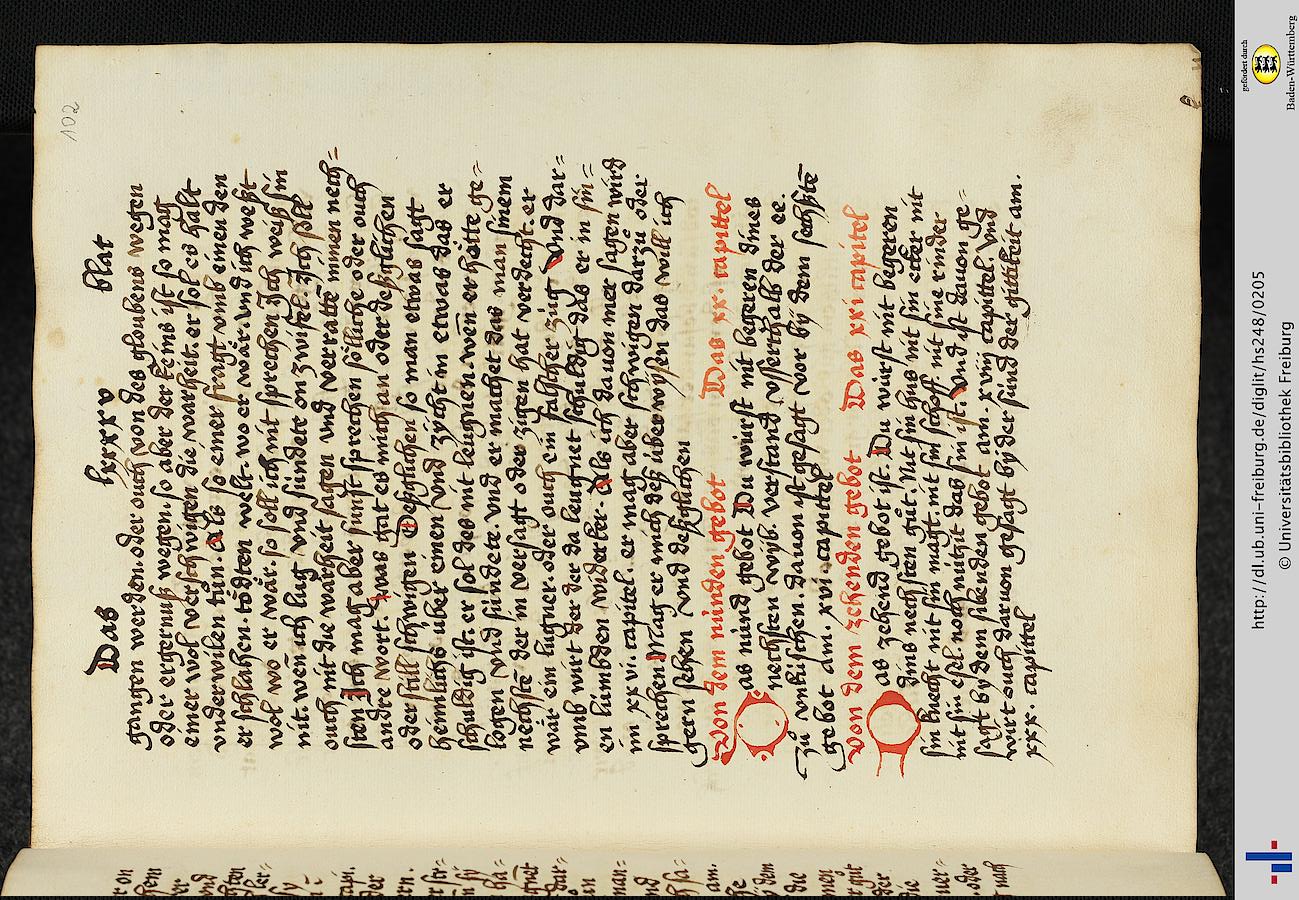 102
Das lxxxv blat
gangen werden. oder ouch von des gloubens wegen
oder ergernuß wegen. so aber der keins ist so mag
einer wol verschwigen die warheit. er sol es hält
vnderwilen tůn. Als so einer fragt vmb einen den
er schlahen. tödten welt. wo er wär. vnd ich weßt
wol wo er wär. so soll ich nit sprechen Ich weiß sin
nit. wen̄ ich lug vnd sündete on zwifel. Ich soll
ouch nit die warheit sagen vnd verraten̄ minen nech=
sten Ich mag aber sunst sprechen söllliche oder ouch
andre wort. was gat es mich an oder deßglichen
oder still schwigen Deßglichen so man etwas sagt
heimlichs über einen vnd zycht in etwas das er
schuldig ist. er sol des nit leugnen. wen̄ er hette ge=
logen vnd sündete. vnd er machet das man sinem
nechstē der in versagt oder zigen hat verdecht. er
wär ein lugner. oder ouch ein falscher züg Vnd dar=
vmb wirt der der da leugnet schuldig das er in sin=
en lümbden widerker. Als ich da von mer sagen wird
im xxvii. capitel. er mag aber schwigen darzů oder
sprechen Mag er mich deß überwysen das will ich
gern sehen vnd deßglichen
Von dem nünden gebot Das xx. capittel
Das nünd gebot Du wirst nit begeren dines
nechsten wyb. verstand vsserthalb der ee.
zů vnküschen. Da von ist gesagt vor by dem sechsstē
gebot am. xvi. capittel
Von dem zehenden gebot Das xxi capitel
Das zehend gebot ist. Du wirst nit begeren
dins nechsten gůt. Nit sin hus nit sin acker nit
sin knecht nit sin magt. nit sin schoff nit sine rinder
nit sin esel. noch nützit das sin ist. Vnd ist dauon ge=
sagt by dem sibenden gebot am. xviij capittel. vnd
wirt ouch daruon gesagt by der sünd der gittikeit am.
xxx. capittel
gefördert durch
Baden-Württemberg
http://dl.ub.uni-freiburg.de/diglit/hs248/0205
© Universitätsbibliothek Freiburg